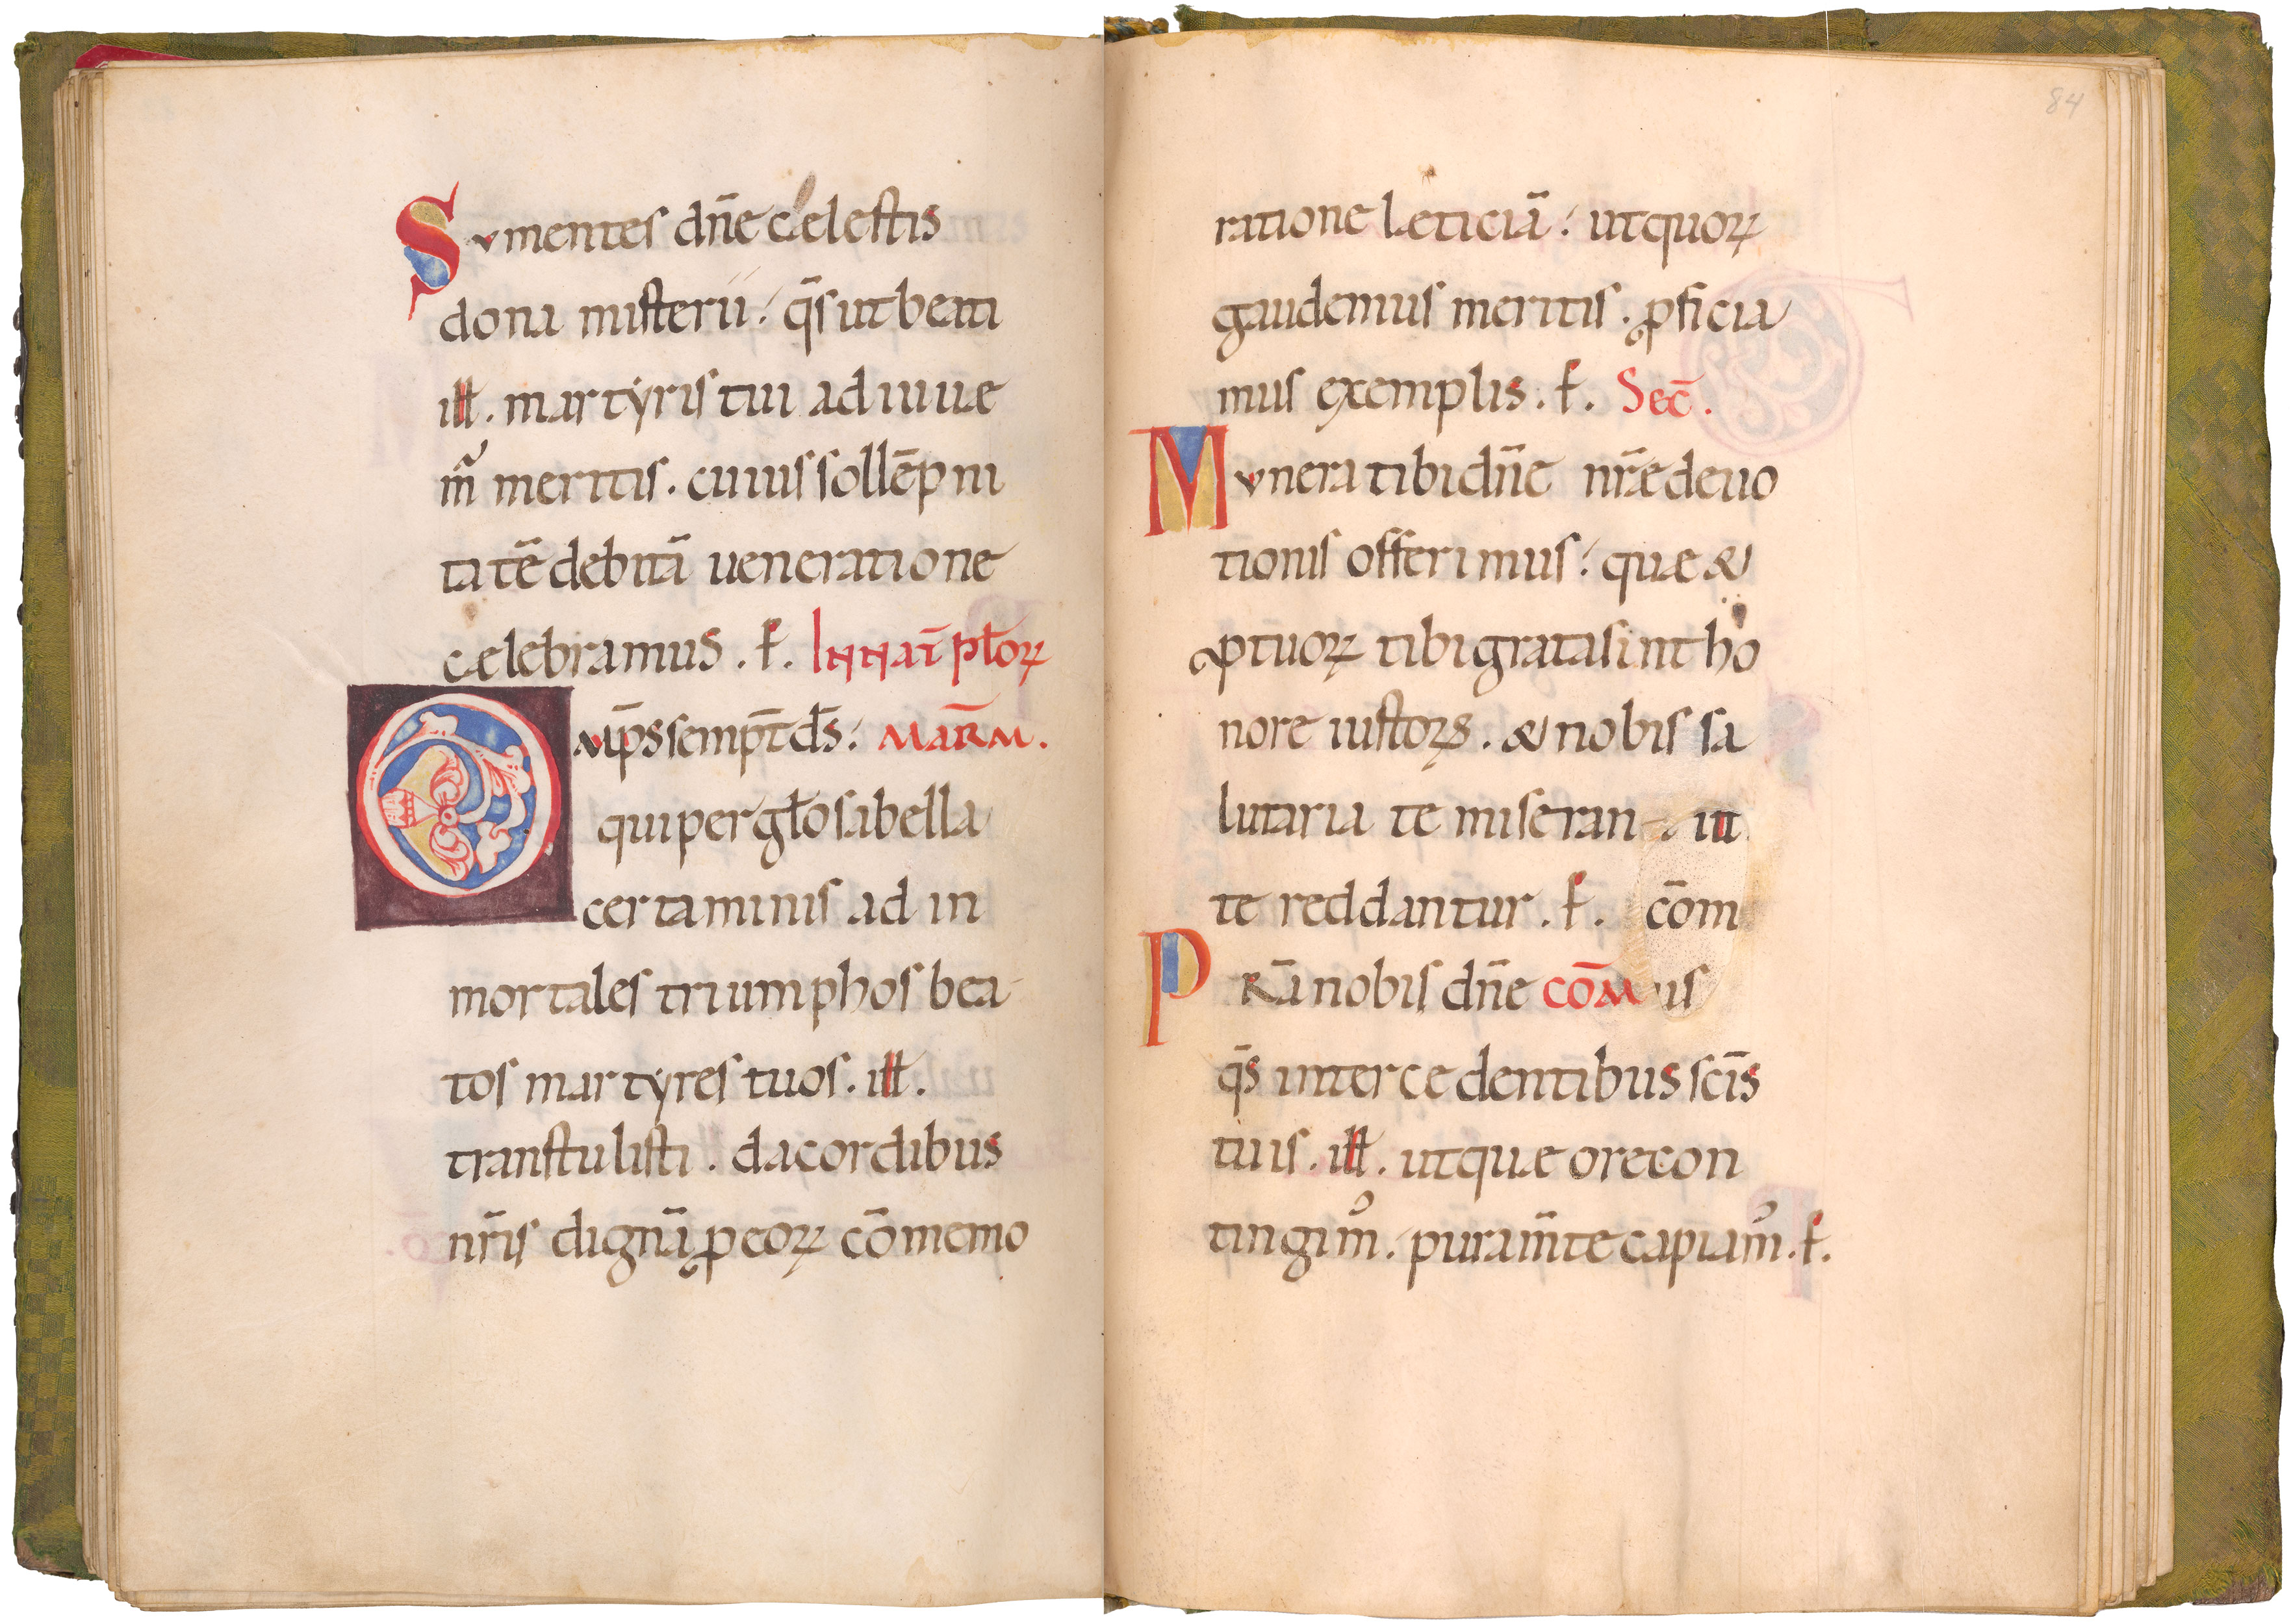 Sumentes dn̄e cælestis
dona misterii: q̄s ut beati
iłł. martẏris tui adiuuæ
m̄ meritis. cuius sollēpni
tatē debitā ueneratione
cælebramus. ꝑ. In nat̄ płorꝝ
Om̄ps semp̄t ds̄: mar̄m.
qui per głosa bella
certaminis ad in
mortales triumphos bea
tos martẏres tuos. iłł.
transtulisti. da cordibus
nr̄is dignā ꝓ eorꝝ cōmemo
84
ratione læticiā: ut quorꝝ
gaudemus meritis. ꝓficia
mus exemplis. ꝑ. Sec̄.
Munera tibi dn̄e nr̄æ deuo
tionis offerimus: quæ &
ꝓ tuorꝝ tibi grata sint ho
nore iustorꝝ. & nobis sa
lutaria te miseran
te reddantur. ꝑ. cōm
Prā nobis dn̄e cōm
q̄s intercedentibus scīs
tuis. iłł. ut quæ ore con
tingim᾽. puram̄te capiam᾽. ꝑ.